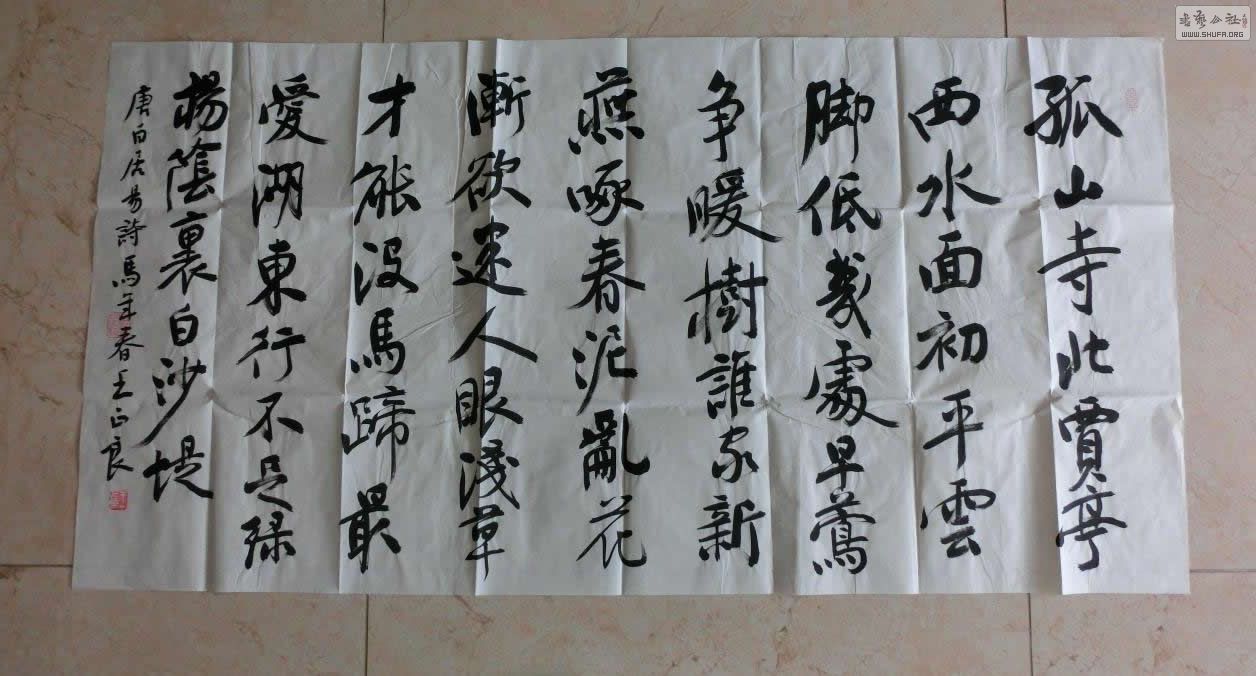 孤山寺北賈亭
西水面初平雲
脚低幾處早鶯
争暖樹誰家新
燕啄春泥亂花
漸欲迷人眼淺草
才能没馬蹄最
愛湖東行不足緑
楊蔭裏白沙堤
唐白居易詩馬年春王正良
書藝公社
WWW.SHUFA.ORG